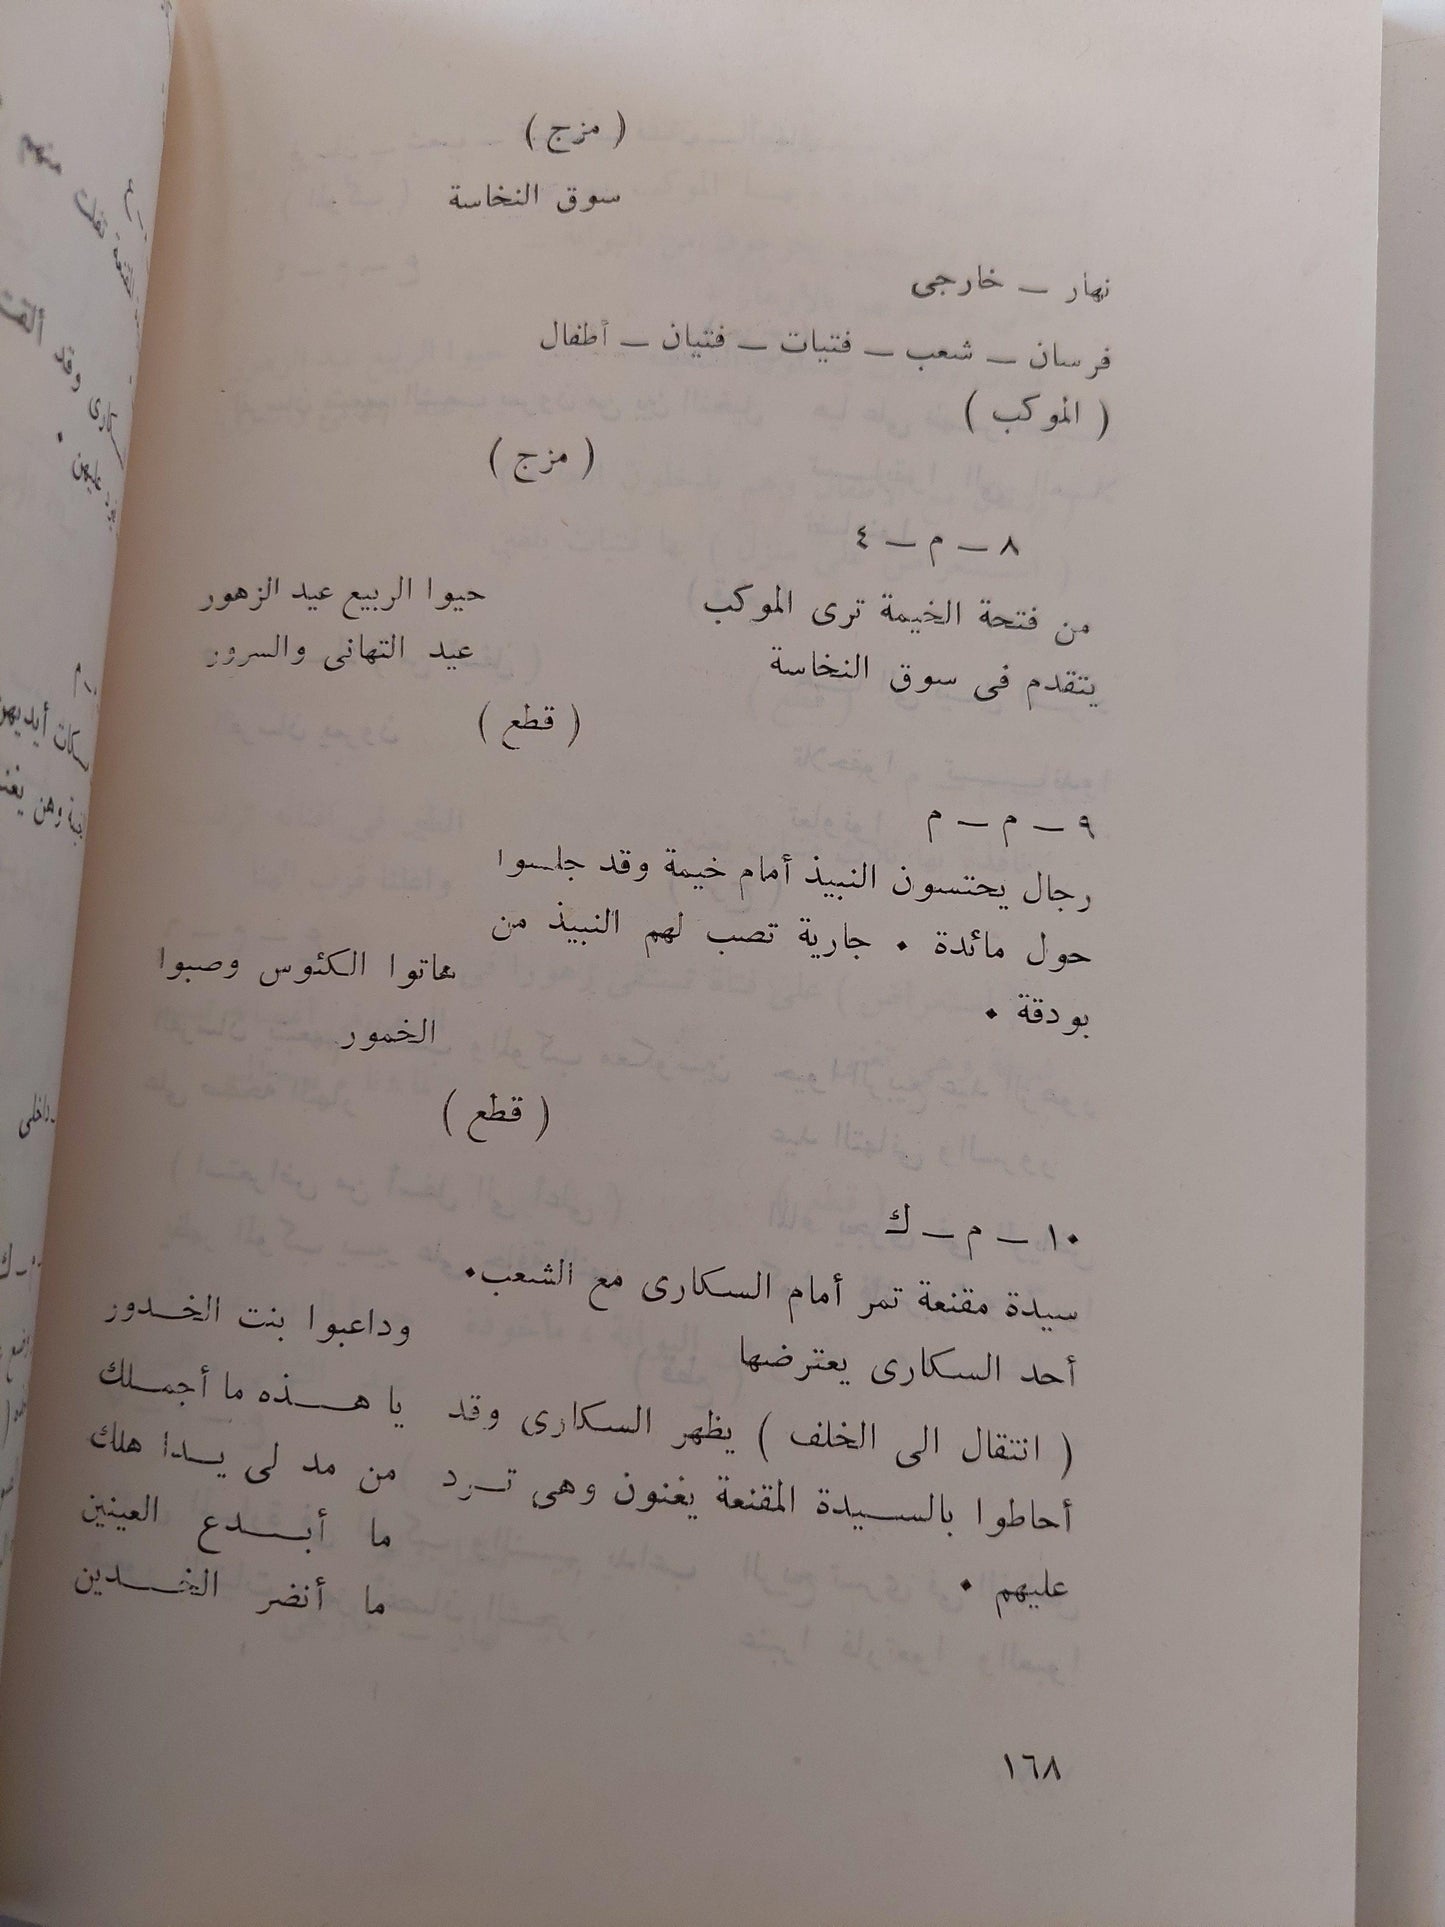 ( مزج )
سوق النخاسة
نهار — خارجى
فرسان — شعب — فتيات — فتيان — أطفال
( الموكب )
( مزج )
٨ — م — ٤
من فتحة الخيمة ترى الموكب
حيوا الربيع عيد الزهور
يتقدم فى سوق النخاسة
عيد التهانى والسرور
( قطع )
٩ — م — م
رجال يحتسون النبيذ أمام خيمة وقد جلسوا
حول مائدة • جارية تصب لهم النبيذ من
هاتوا الكئوس وصبوا
بودقة •
الخمور
( قطع )
١٠ — م — ك
سيدة مقنعة تمر أمام السكارى مع الشعب•
وداعبوا بنت الخدور
أحد السكارى يعترضها
( انتقال الى الخلف ) يظهر السكارى وقد
يا هذه ما أجملك
أحاطوا بالسيدة المقنعة يغنون وهى ترد
من مد لى يدا هلك
عليهم •
ما أبدع العينين
ما أنضر الخدين
١٦٨